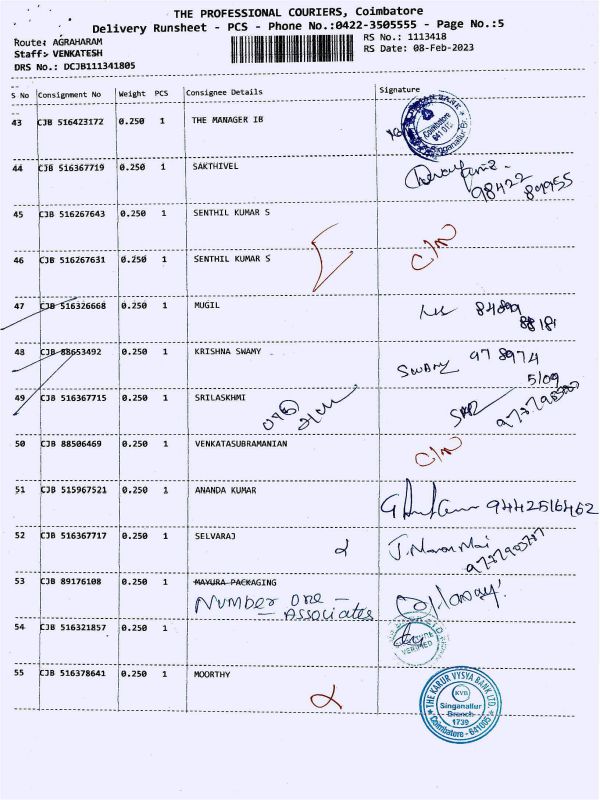 THE PROFESSIONAL COURIERS, Coimbatore
Delivery Runsheet - PCS - Phone No.:0422-3505555 - Page No.:5
Route: AGRAHARAM
Staff: VENKATESH
DRS No.: DCJB111341805
RS No.: 1113418
RS Date: 08-Feb-2023
S No Consignment No Weight PCS Consignee Details Signature
43 CJB 516423172 0.250 1 THE MANAGER IB
Coimbatore
Singanallur Br.
44 CJB 516367719 0.250 1 SAKTHIVEL
98422
45 CJB 516267643 0.250 1 SENTHIL KUMAR S
46 CJB 516267631 0.250 1 SENTHIL KUMAR S C/N
47 CJB 516326668 0.250 1 MUGIL
84899
88181
48 CJB 88653492 0.250 1 KRISHNA SWAMY
SWAMY 978974
5109
49 CJB 516367715 0.250 1 SRILASKHMI
50 CJB 88506469 0.250 1 VENKATASUBRAMANIAN C/N
51 CJB 515967521 0.250 1 ANANDA KUMAR
9442516462
52 CJB 516367717 0.250 1 SELVARAJ
53 CJB 89176108 0.250 1 MAYURA PACKAGING
Number one -
Associates
54 CJB 516321857 0.250 1
VERIFIED
55 CJB 516378641 0.250 1 MOORTHY
THE KARUR VYSYA BANK LTD.
KVB
Singanallur
Branch
1739
Coimbatore - 641005